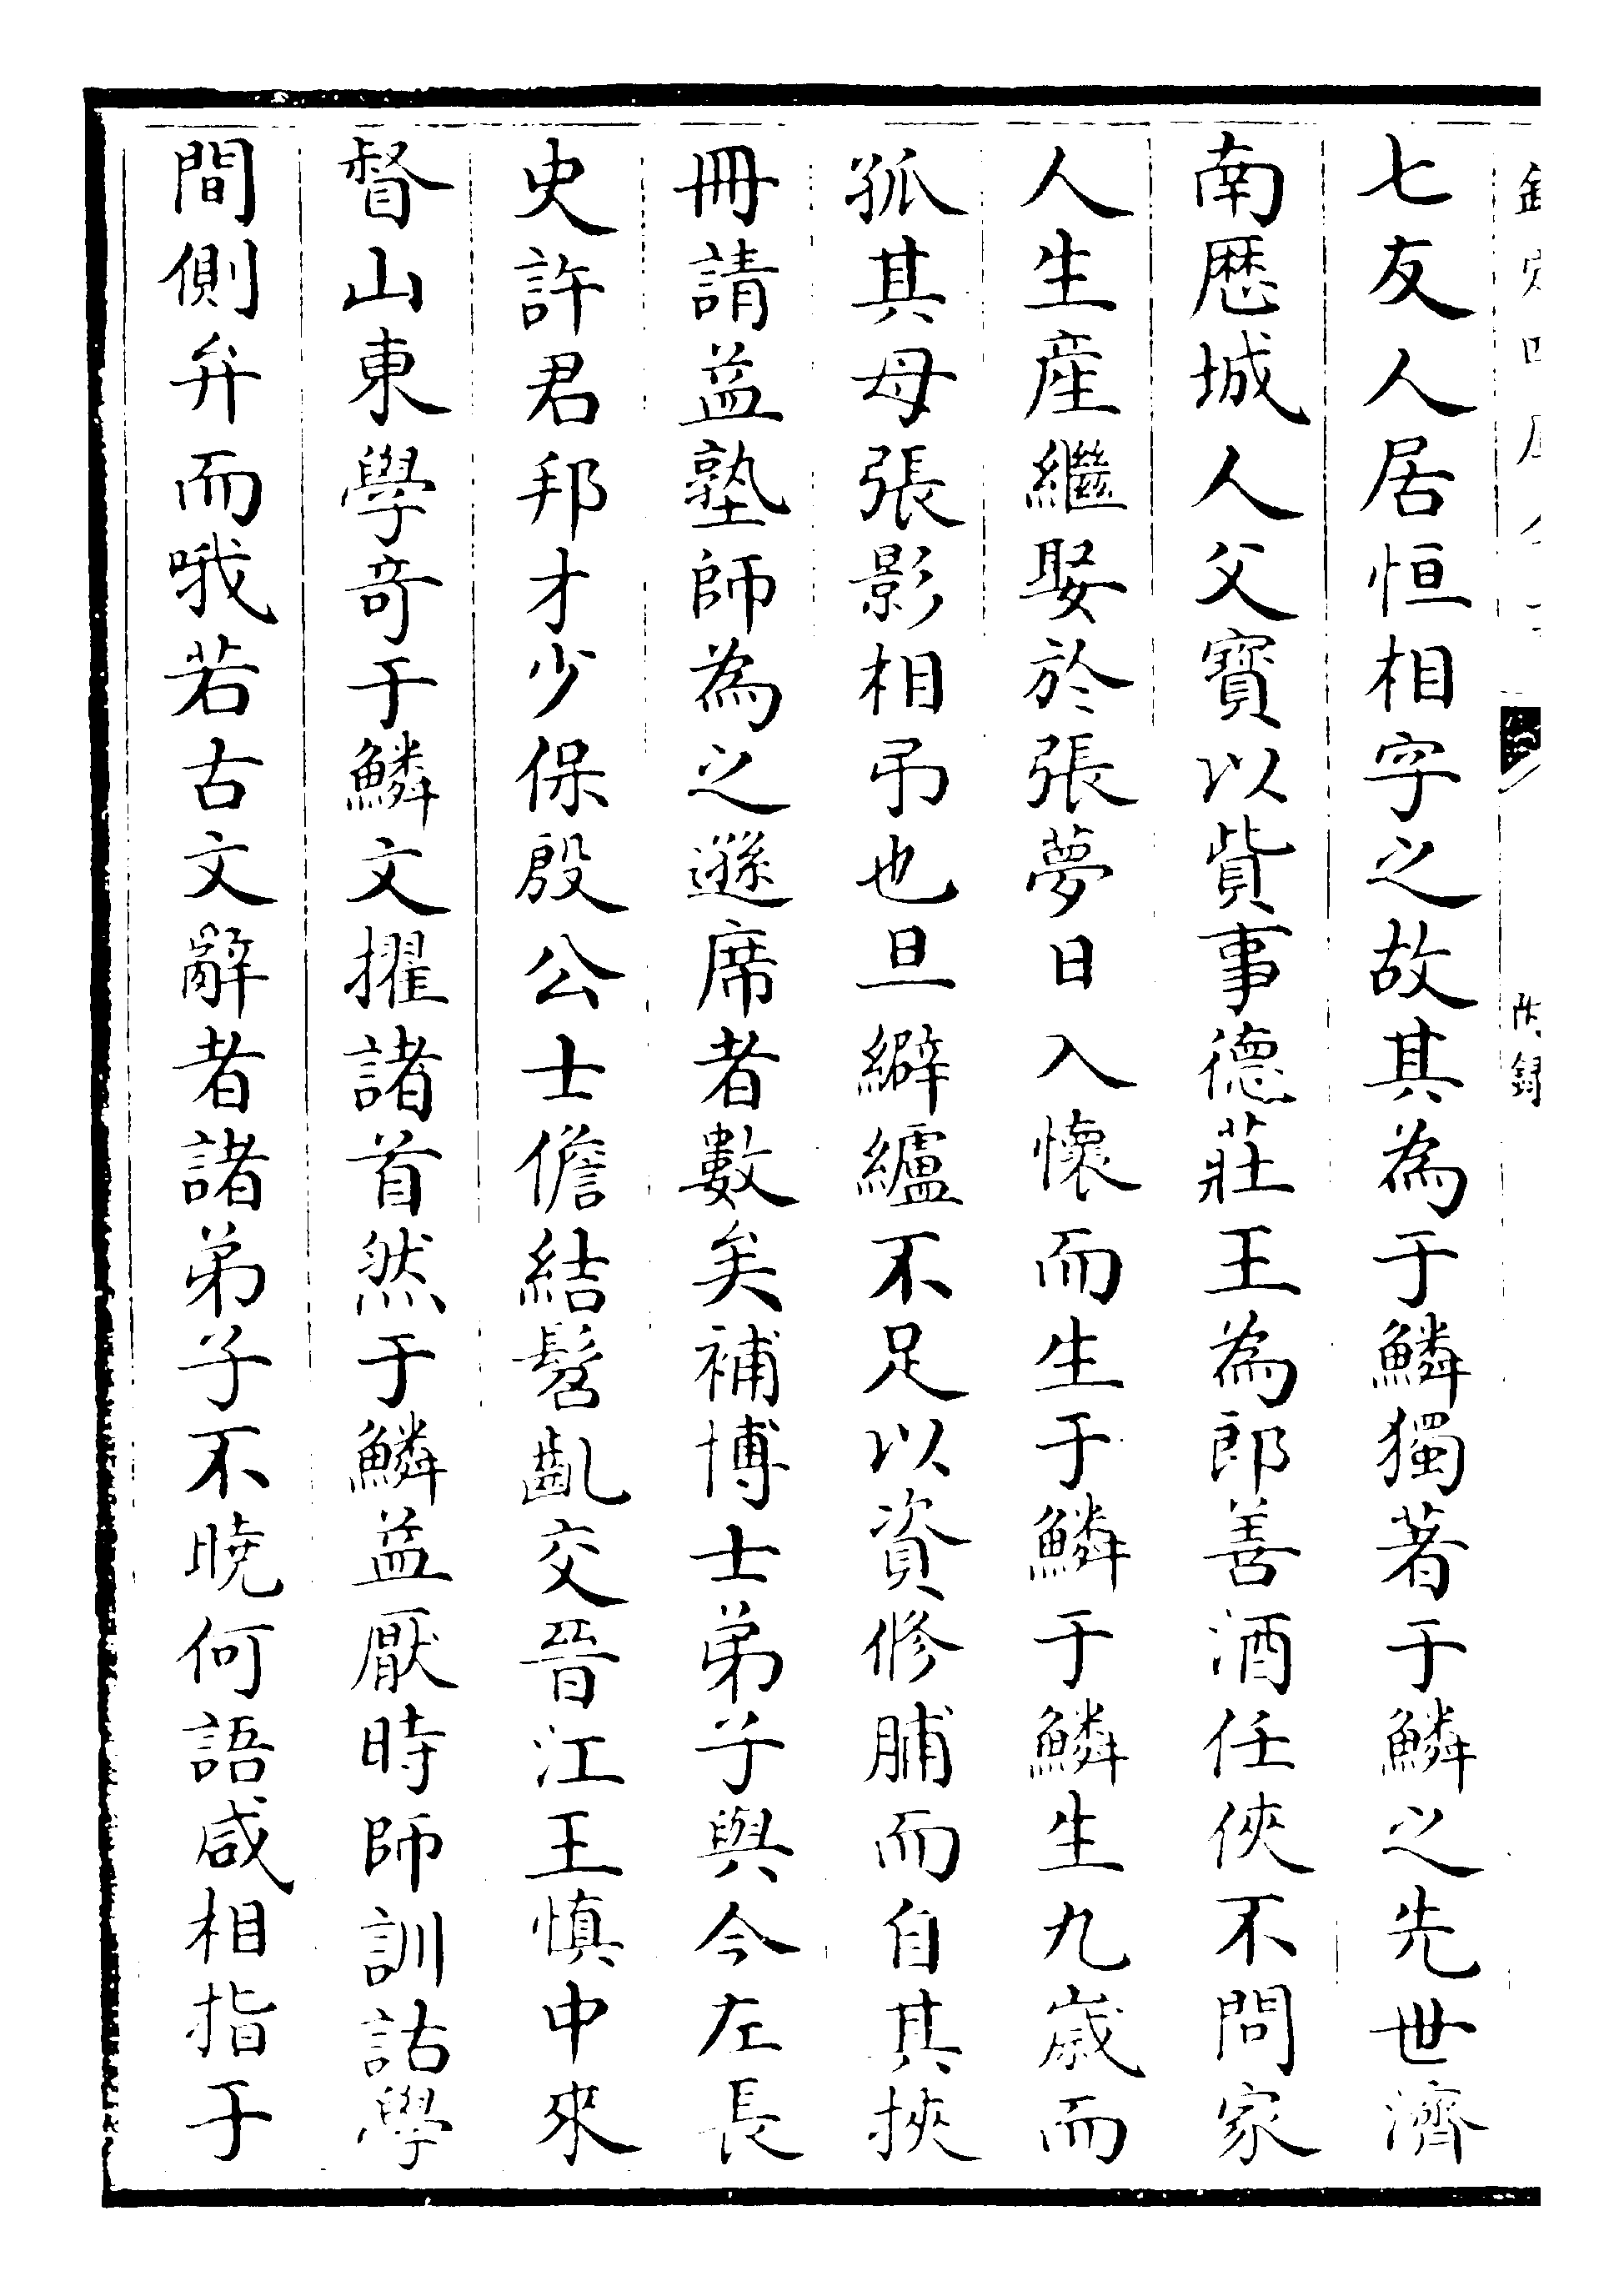 七友人居恒相字之故其為于鱗獨著于鱗之先世濟
南歴城人父寳以貲事德莊王為郎善酒任俠不問家
人生産繼娶於張夢日入懐而生于鱗于鱗生九嵗而
孤其母張影相弔也旦緶纑不足以資修脯而自其挾
冊請益塾師為之遜席者數矣補博士弟子與今左長
史許君邦才少保殷公士儋結髫齓交晉江王慎中來
督山東學竒于鱗文擢諸首然于鱗益厭時師訓詁學
間側弁而哦若古文辭者諸弟子不曉何語咸相指于
附録